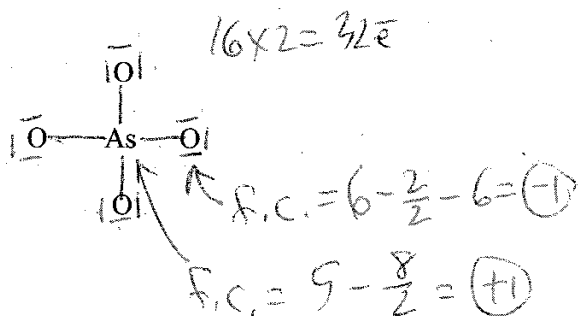 16×2=32ē
|O|
|O—As—O|
|O|
f.c. = 6 - 2/2 - 6 = -1
f.c. = 5 - 8/2 = +1